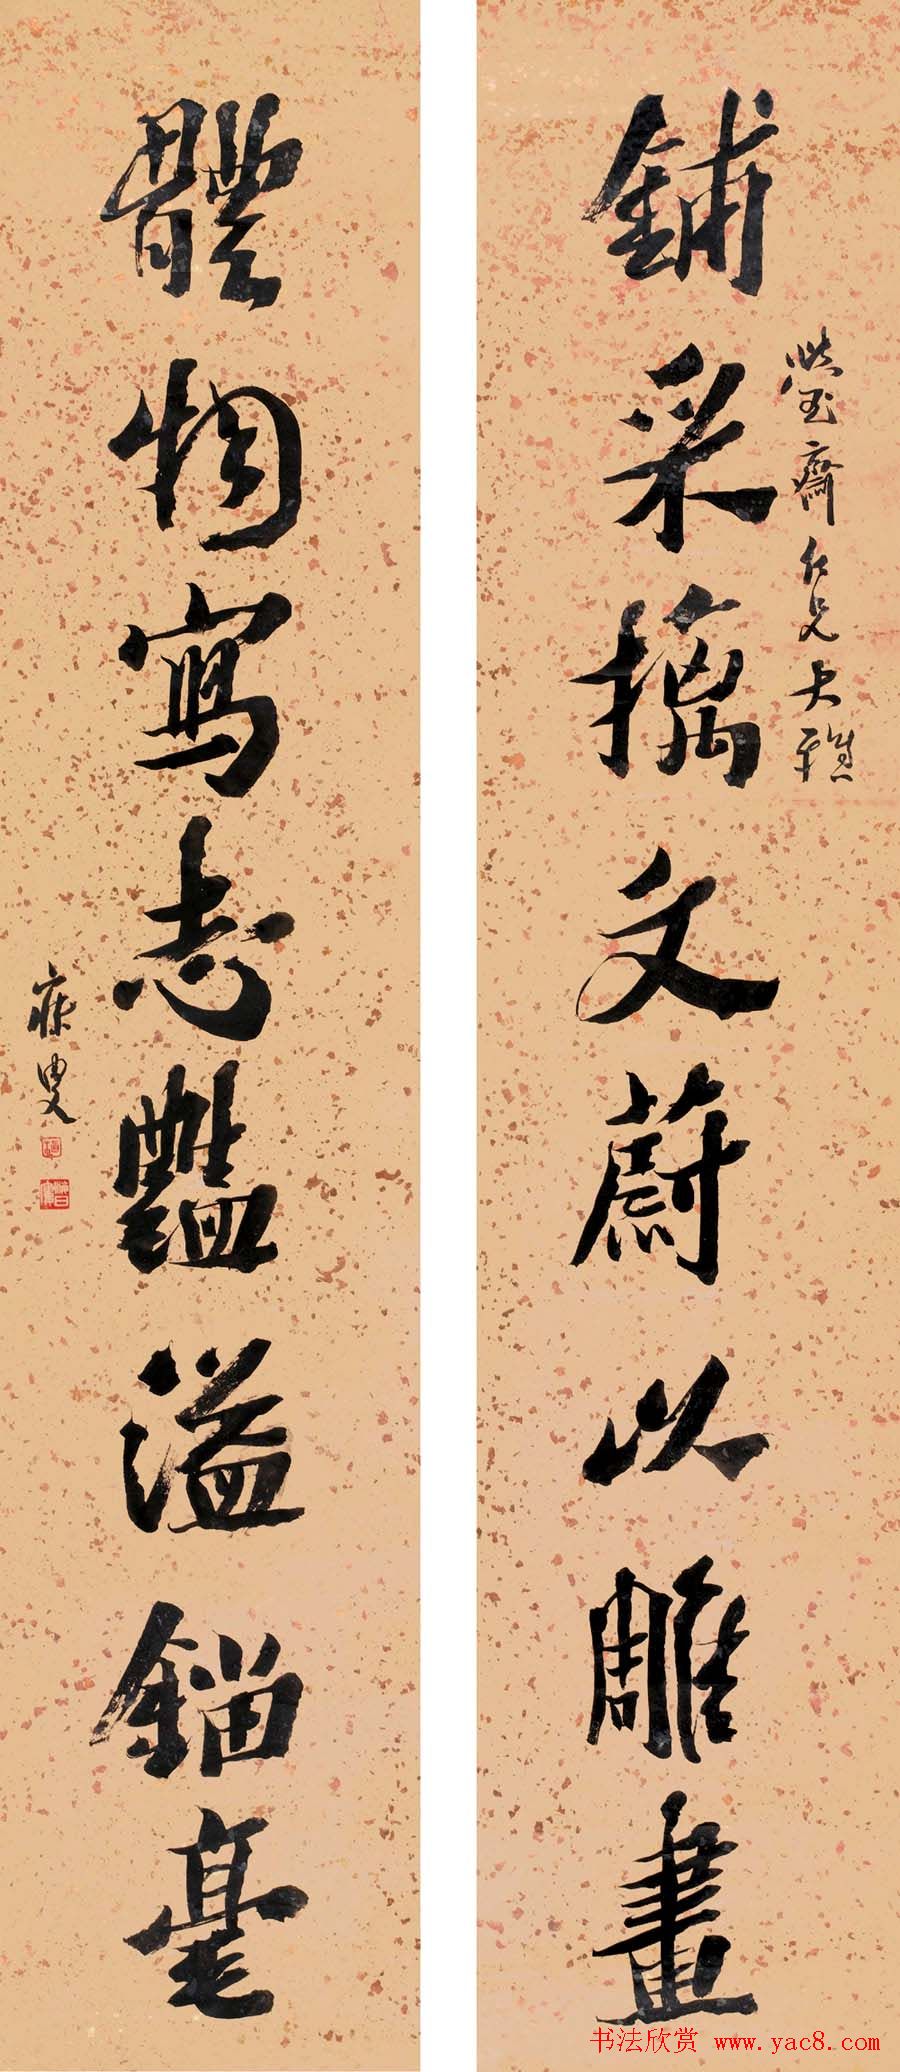 鋪采摛文蔚以雕畫
瑩齋仁兄大雅
體物寫志豔溢錙毫
寐叟
书法欣赏 www.yac8.com